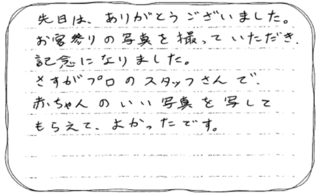 先日は、ありがとうございました。
お宮参りの写真を撮っていただき、
記念になりました。
さすがプロのスタッフさんで、
赤ちゃんのいい写真を写して
もらえて、よかったです。